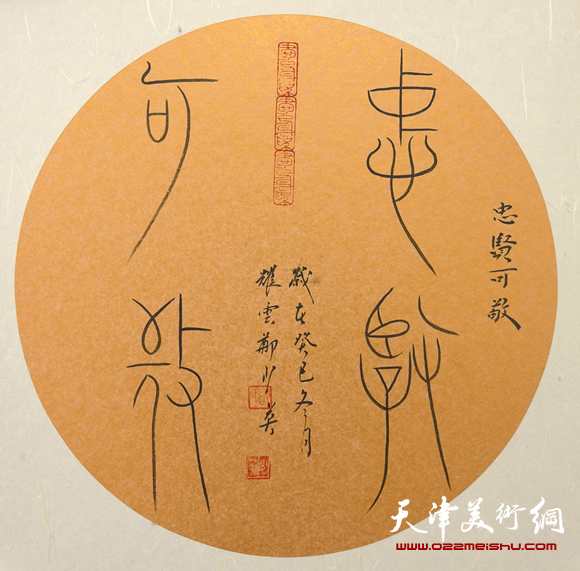 忠賢
可敬
忠賢可敬
歲在癸巳冬月
耀雲鄭少英
天津美術網
www.022meishu.com